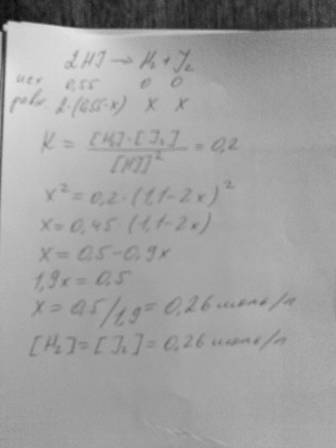 2HJ → H₂ + J₂
исх. 0,55 0 0
равн. 2·(0,55-x) x x
K = [H₂]·[J₂] / [HJ]² = 0,2
x² = 0,2·(1,1-2x)²
x = 0,45·(1,1-2x)
x = 0,5-0,9x
1,9x = 0,5
x = 0,5/1,9 = 0,26 моль/л
[H₂] = [J₂] = 0,26 моль/л